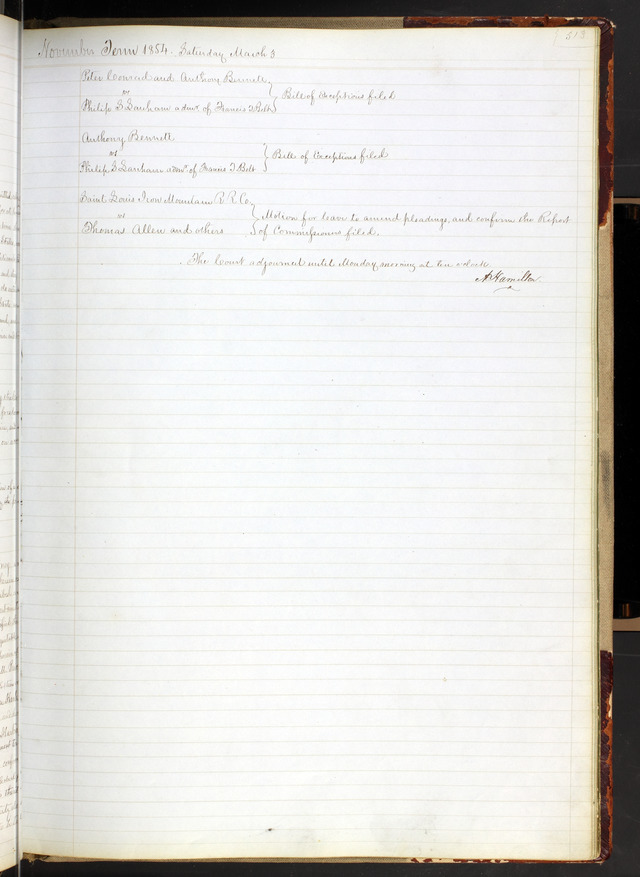 513
November Term 1854. Saturday March 3
Peter Conrad and Anthony Bennett
vs
Philip S Lanham admr. of Francis T Belt
} Bill of Exceptions filed
Anthony Bennett
vs
Philip S Lanham admr. of Francis T Belt
} Bill of Exceptions filed
Saint Louis Iron Mountain R R Co
vs
Thomas Allen and others
} Motion for leave to amend pleadings, and confirm the Report
of Commissioners filed.
The Court adjourned until Monday morning at ten o'clock
A Hamilton